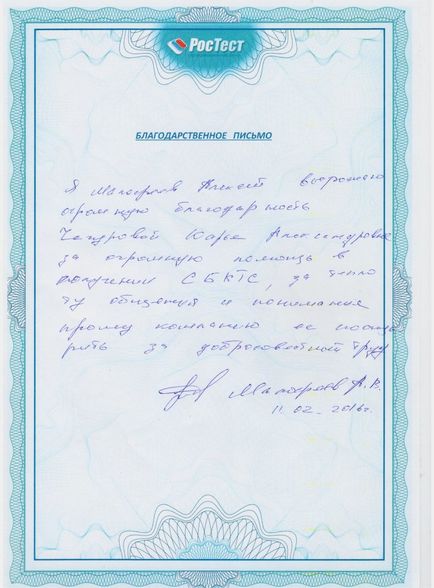 РосТест
БЛАГОДАРСТВЕННОЕ ПИСЬМО
Я Алексей выражаю
огромную благодарность
Александровне
за огромную помощь в
получении СБКТС, за тепло
ту общения и понимания
прошу компанию ее поощ
рить за добросовестный труд
А. В.
11.02.2016г.